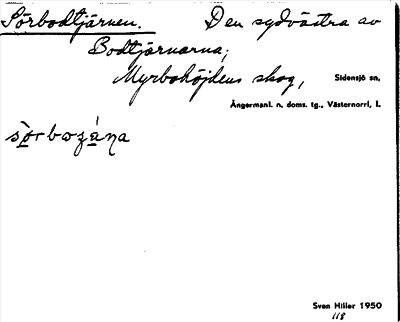 Sörbodtjärnen. Den sydvästra av
Bodtjärnarna;
Myrbohöjdens skog, Sidensjö sn,
Ångermanl. n. doms. tg., Västernorrl. l.
Sven Hiller 1950
118